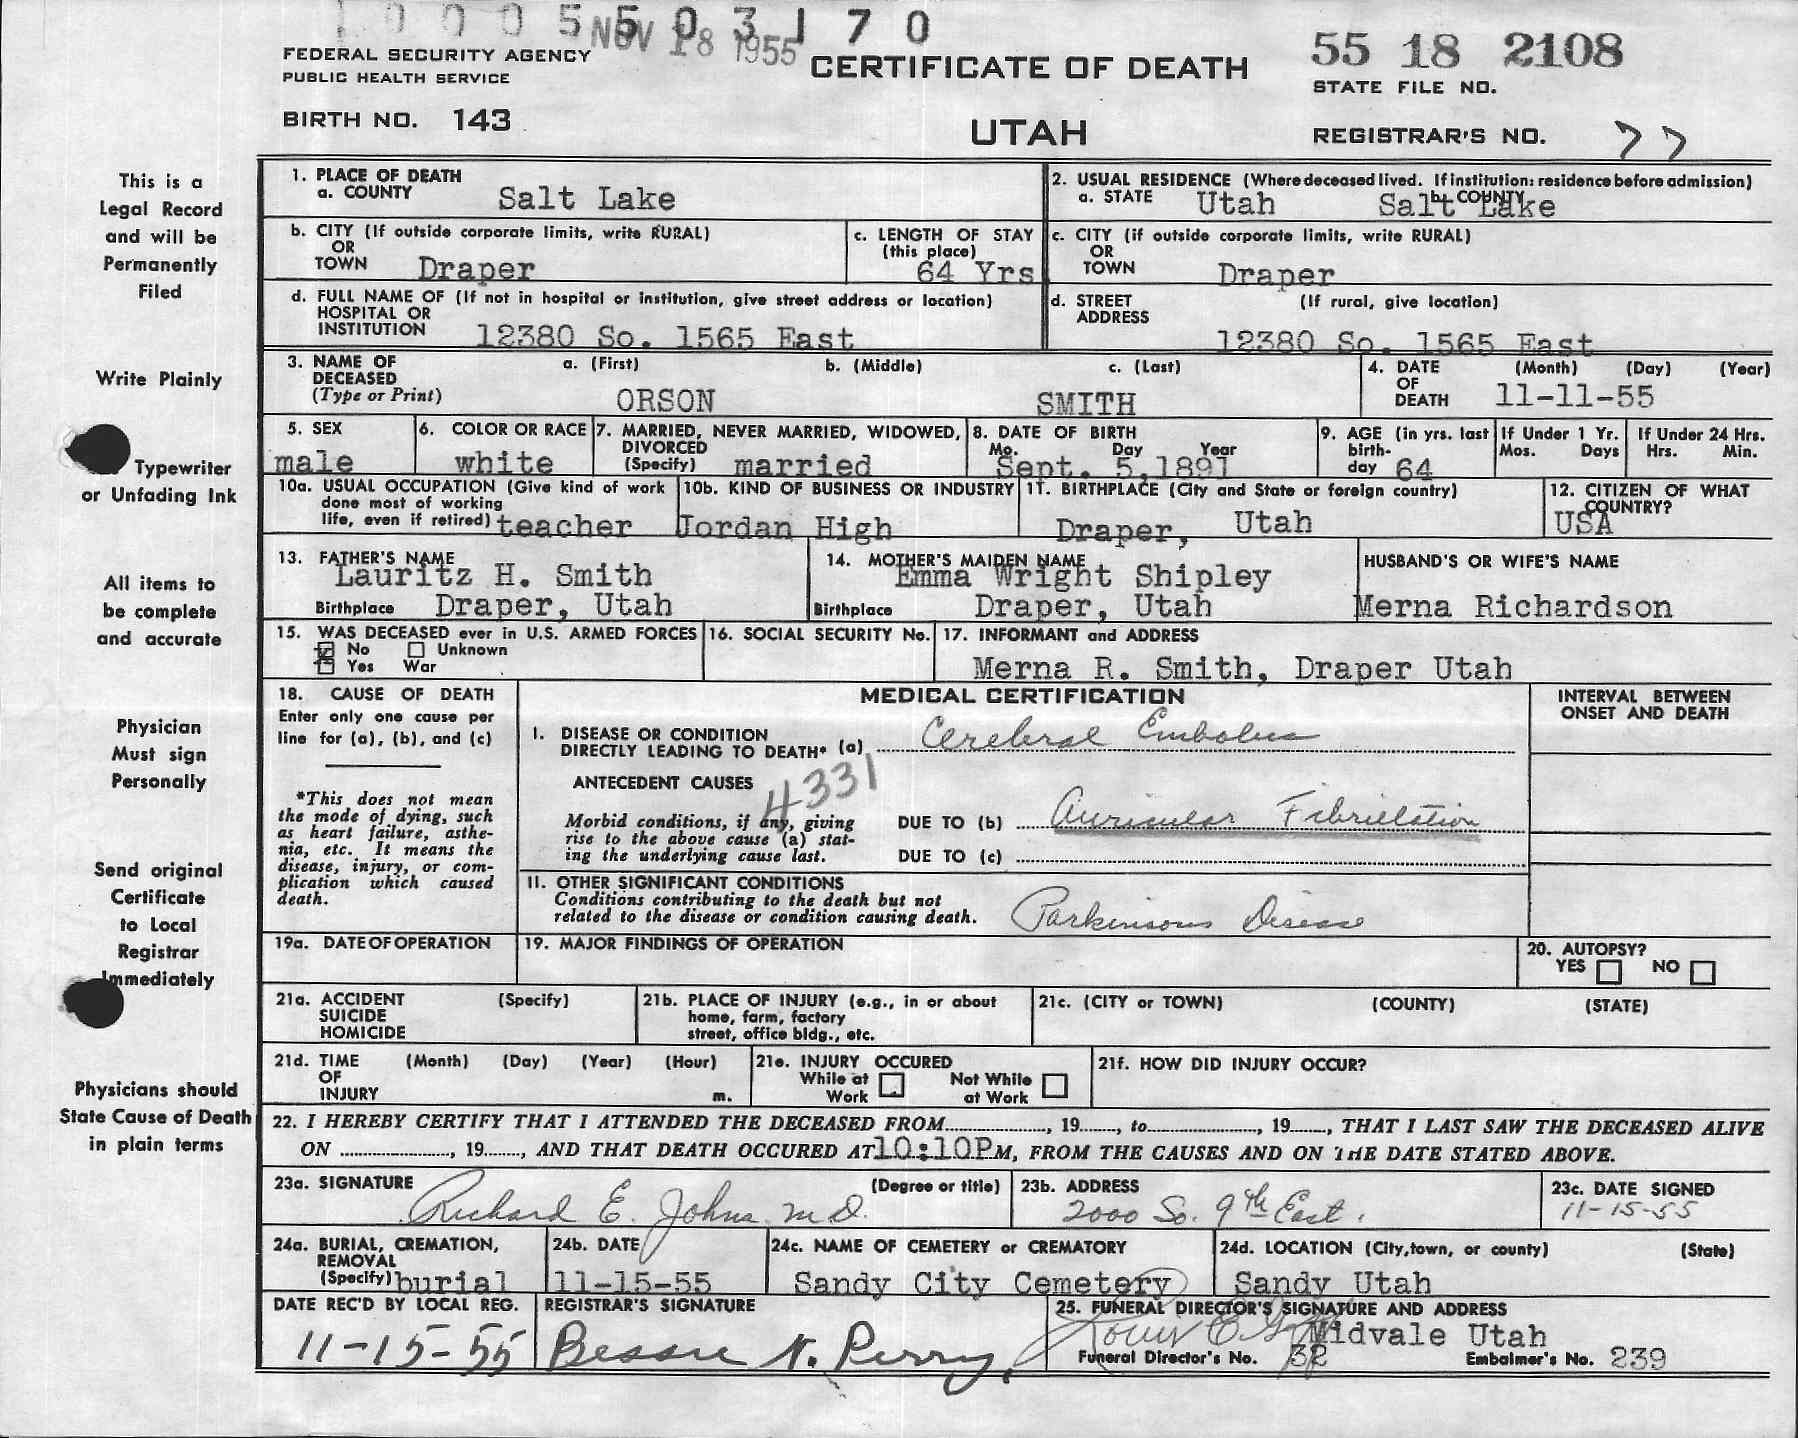 1 0 0 0 5 5 0 3 1 7 0
NOV 18 1955
FEDERAL SECURITY AGENCY
PUBLIC HEALTH SERVICE
CERTIFICATE OF DEATH
55 18 2108
STATE FILE NO.
BIRTH NO. 143
UTAH
REGISTRAR'S NO. 77
This is a
Legal Record
and will be
Permanently
Filed
Write Plainly
Typewriter
or Unfading Ink
All items to
be complete
and accurate
Physician
Must sign
Personally
Send original
Certificate
to Local
Registrar
Immediately
Physicians should
State Cause of Death
in plain terms
1. PLACE OF DEATH
a. COUNTY Salt Lake
2. USUAL RESIDENCE (Where deceased lived. If institution: residence before admission)
a. STATE Utah b. COUNTY Salt Lake
b. CITY (If outside corporate limits, write RURAL)
OR
TOWN Draper
c. LENGTH OF STAY
(this place)
64 Yrs
c. CITY (if outside corporate limits, write RURAL)
OR
TOWN Draper
d. FULL NAME OF (If not in hospital or institution, give street address or location)
HOSPITAL OR
INSTITUTION 12380 So. 1565 East
d. STREET (If rural, give location)
ADDRESS
12380 So. 1565 East
3. NAME OF a. (First) b. (Middle) c. (Last)
DECEASED
(Type or Print) ORSON SMITH
4. DATE (Month) (Day) (Year)
OF
DEATH 11-11-55
5. SEX
male
6. COLOR OR RACE
white
7. MARRIED, NEVER MARRIED, WIDOWED,
DIVORCED
(Specify) married
8. DATE OF BIRTH
Mo. Day Year
Sept. 5,1891
9. AGE (in yrs. last
birth-
day 64
If Under 1 Yr.
Mos. Days
If Under 24 Hrs.
Hrs. Min.
10a. USUAL OCCUPATION (Give kind of work
done most of working
life, even if retired) teacher
10b. KIND OF BUSINESS OR INDUSTRY
Jordan High
11. BIRTHPLACE (City and State or foreign country)
Draper, Utah
12. CITIZEN OF WHAT
COUNTRY?
USA
13. FATHER'S NAME
Lauritz H. Smith
Birthplace Draper, Utah
14. MOTHER'S MAIDEN NAME
Emma Wright Shipley
Birthplace Draper, Utah
HUSBAND'S OR WIFE'S NAME
Merna Richardson
15. WAS DECEASED ever in U.S. ARMED FORCES
No Unknown
Yes War
16. SOCIAL SECURITY No.
17. INFORMANT and ADDRESS
Merna R. Smith, Draper Utah
18. CAUSE OF DEATH
Enter only one cause per
line for (a), (b), and (c)
*This does not mean
the mode of dying, such
as heart failure, asthe-
nia, etc. It means the
disease, injury, or com-
plication which caused
death.
MEDICAL CERTIFICATION
INTERVAL BETWEEN
ONSET AND DEATH
I. DISEASE OR CONDITION
DIRECTLY LEADING TO DEATH* (a) Cerebral Embolus
ANTECEDENT CAUSES
4331
Morbid conditions, if any, giving
rise to the above cause (a) stat-
ing the underlying cause last.
DUE TO (b) Auricular Fibrillation
DUE TO (c)
II. OTHER SIGNIFICANT CONDITIONS
Conditions contributing to the death but not
related to the disease or condition causing death.
Parkinsons Disease
19a. DATE OF OPERATION
19. MAJOR FINDINGS OF OPERATION
20. AUTOPSY?
YES NO
21a. ACCIDENT (Specify)
SUICIDE
HOMICIDE
21b. PLACE OF INJURY (e.g., in or about
home, farm, factory
street, office bldg., etc.
21c. (CITY or TOWN) (COUNTY) (STATE)
21d. TIME (Month) (Day) (Year) (Hour)
OF
INJURY m.
21e. INJURY OCCURED
While at Work Not While at Work
21f. HOW DID INJURY OCCUR?
22. I HEREBY CERTIFY THAT I ATTENDED THE DECEASED FROM............, 19......, to............, 19......, THAT I LAST SAW THE DECEASED ALIVE
ON ............, 19......, AND THAT DEATH OCCURED AT 10:10P M, FROM THE CAUSES AND ON THE DATE STATED ABOVE.
23a. SIGNATURE (Degree or title)
Richard E. Johns M.D.
23b. ADDRESS
2000 So. 9th East.
23c. DATE SIGNED
11-15-55
24a. BURIAL, CREMATION,
REMOVAL
(Specify) burial
24b. DATE
11-15-55
24c. NAME OF CEMETERY or CREMATORY
Sandy City Cemetery
24d. LOCATION (City, town, or county) (State)
Sandy Utah
DATE REC'D BY LOCAL REG.
11-15-55
REGISTRAR'S SIGNATURE
Bessie N. Perry
25. FUNERAL DIRECTOR'S SIGNATURE AND ADDRESS
Midvale Utah
Funeral Director's No. 32 Embalmer's No. 239